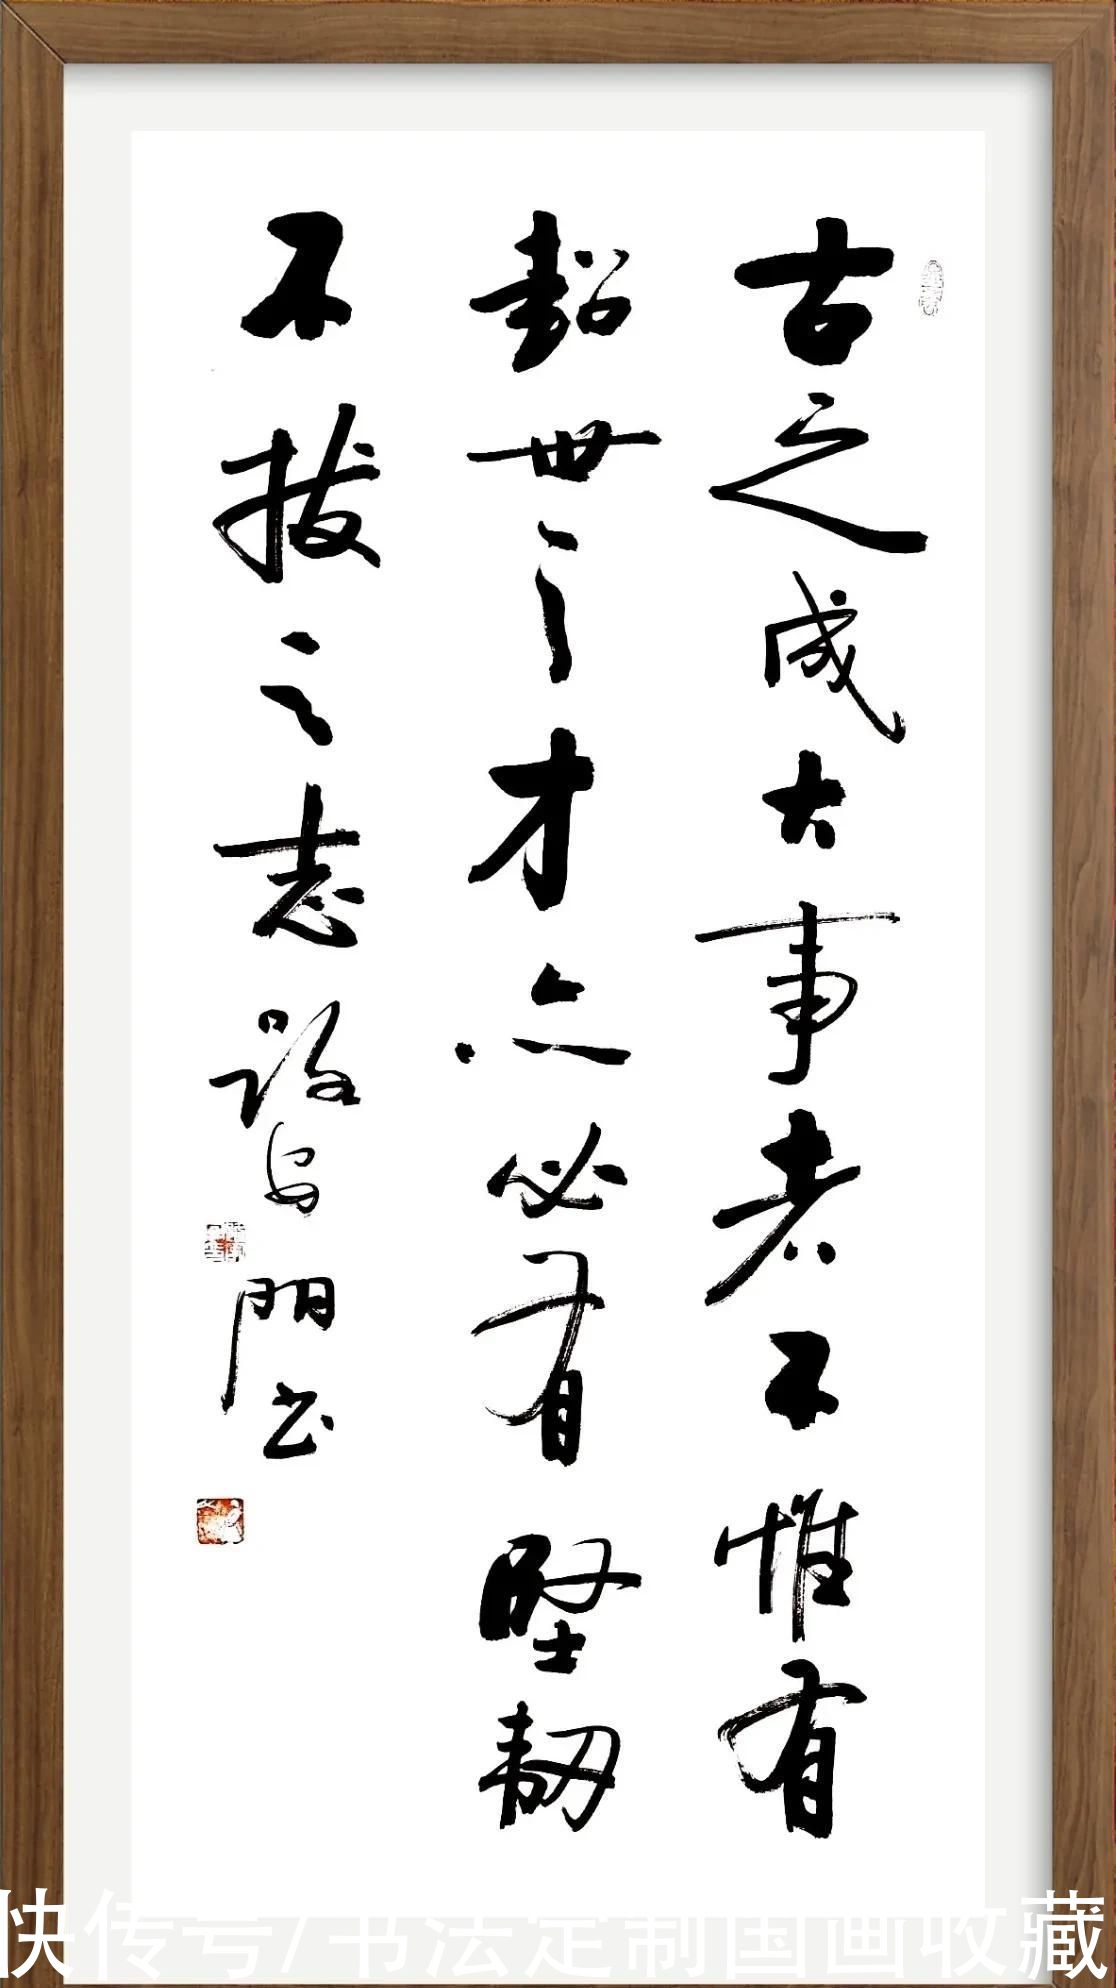 古之成大事者不惟有
超世之才亦必有堅韌
不拔之志 书
快传号/书法定制国画收藏